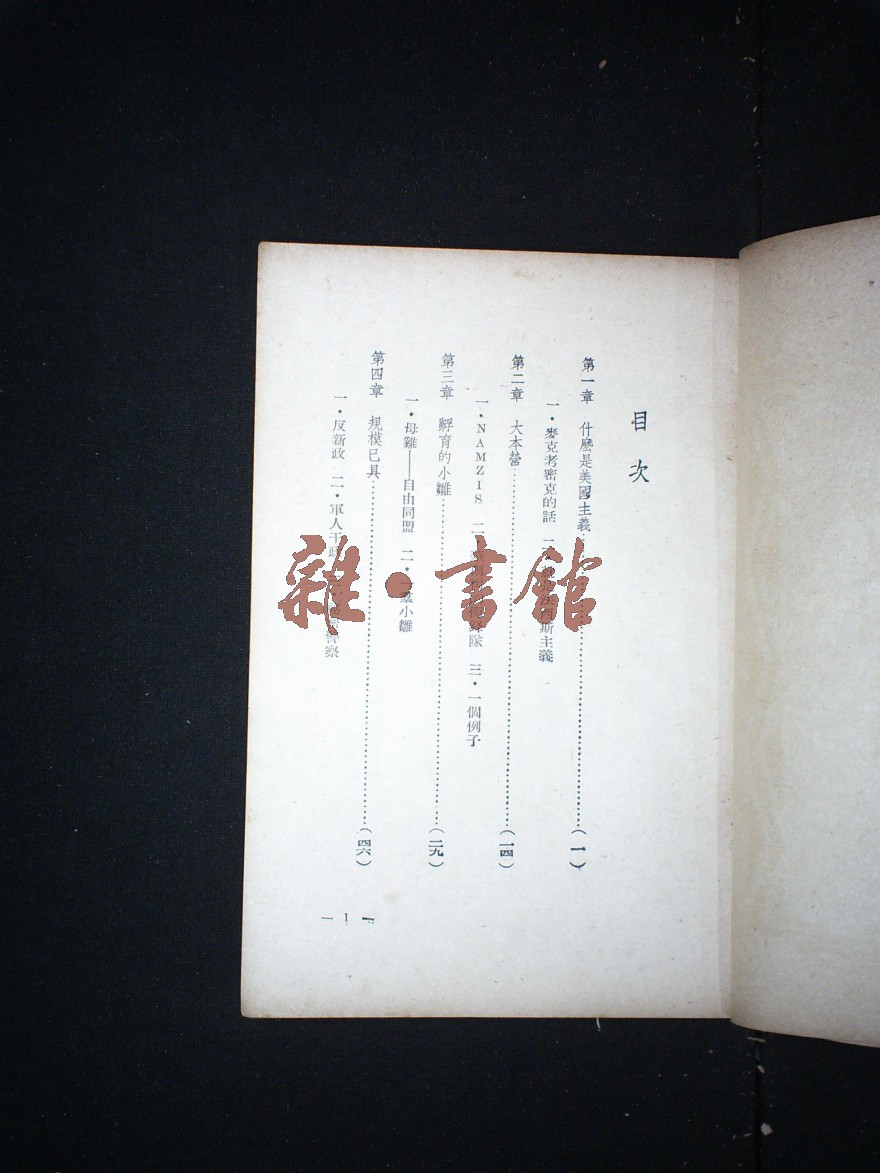 目次
第一章 什麽是美國主義……(一)
一・麥克考密克的話 二・ 斯主義
第二章 大本營……(一四)
一・NAMZIS 二・ 隊 三・一個例子
第三章 孵育的小雛……(二九)
一・母雞——自由同盟 二・ 小雛
第四章 規模已具……(四六)
一・反新政 二・軍人干政 警察
— 1 —
雜・書館